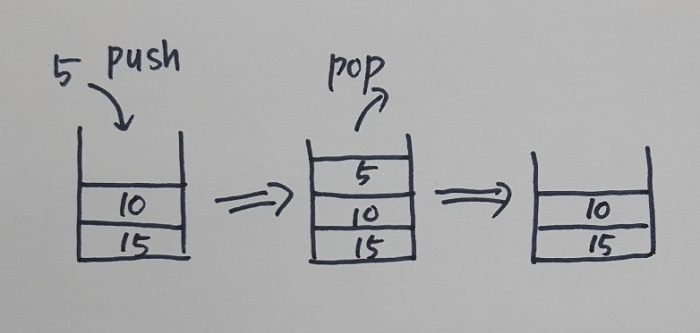 5 push
10
15
pop
5
10
15
10
15